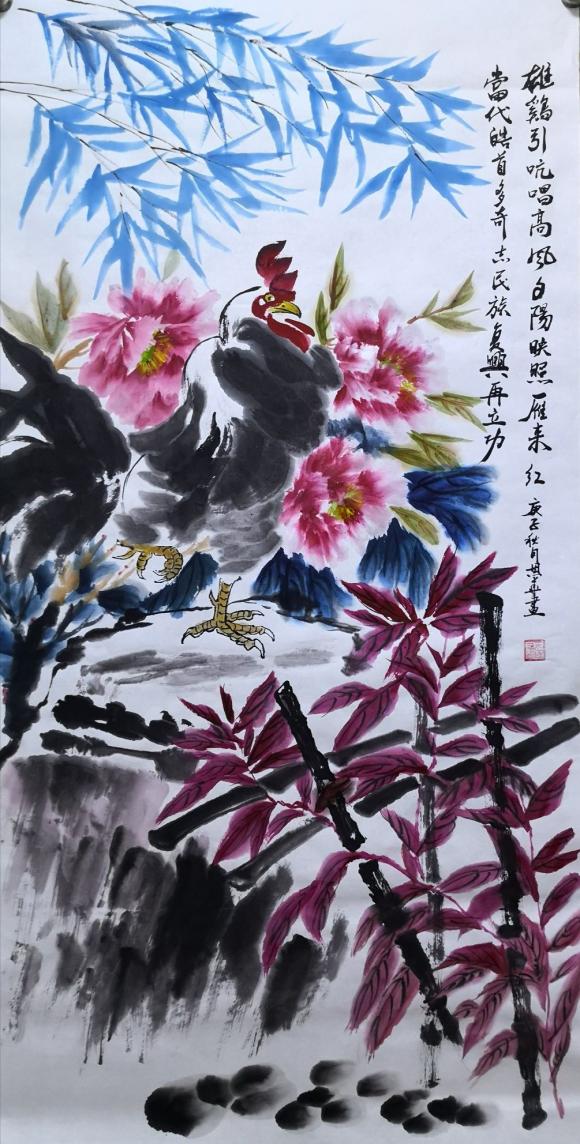 雄鷄引吭唱高風夕陽映照雁来红
當代皓首多奇志民族复興再立功
庚子秋月